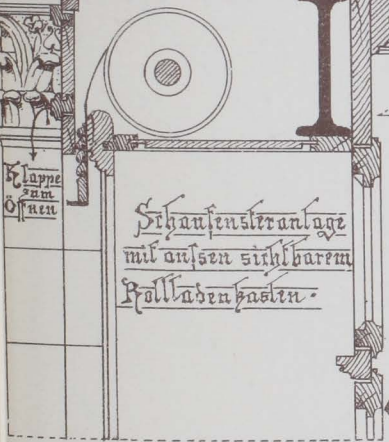 Klappe
zum
Öffnen
Schaufensteranlage
mit aussen sichtbarem
Rollladenkasten.